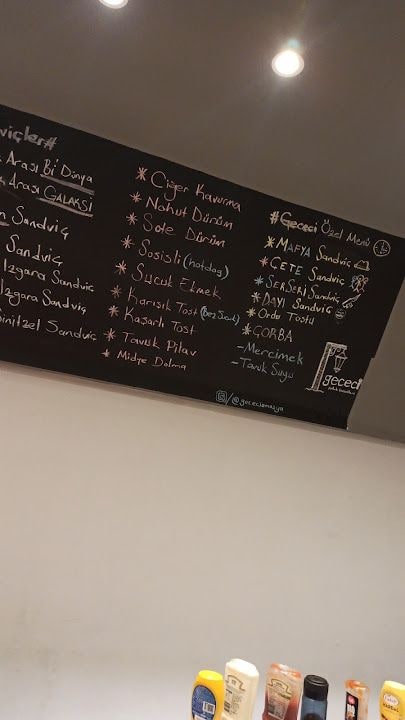 viçler#
Arası Bi Dünya
Arası GALAKSİ
Sandviç
Sandviç
Izgara Sandviç
Izgara Sandviç
Şinitzel Sandviç
* Ciğer Kavurma
* Nohut Dürüm
* Sote Dürüm
* Sosisli (hotdog)
* Sucuk Ekmek
* Karışık Tost
* Kaşarlı Tost
* Tavuk Pilav
* Midye Dolma
#Gececi Özel Menü
* MAFYA Sandviç
* ÇETE Sandviç
* SERSERİ Sandviç
* DAYI Sandviç
* Ordu Tostu
* ÇORBA
- Mercimek
- Tavuk Suyu
gececi